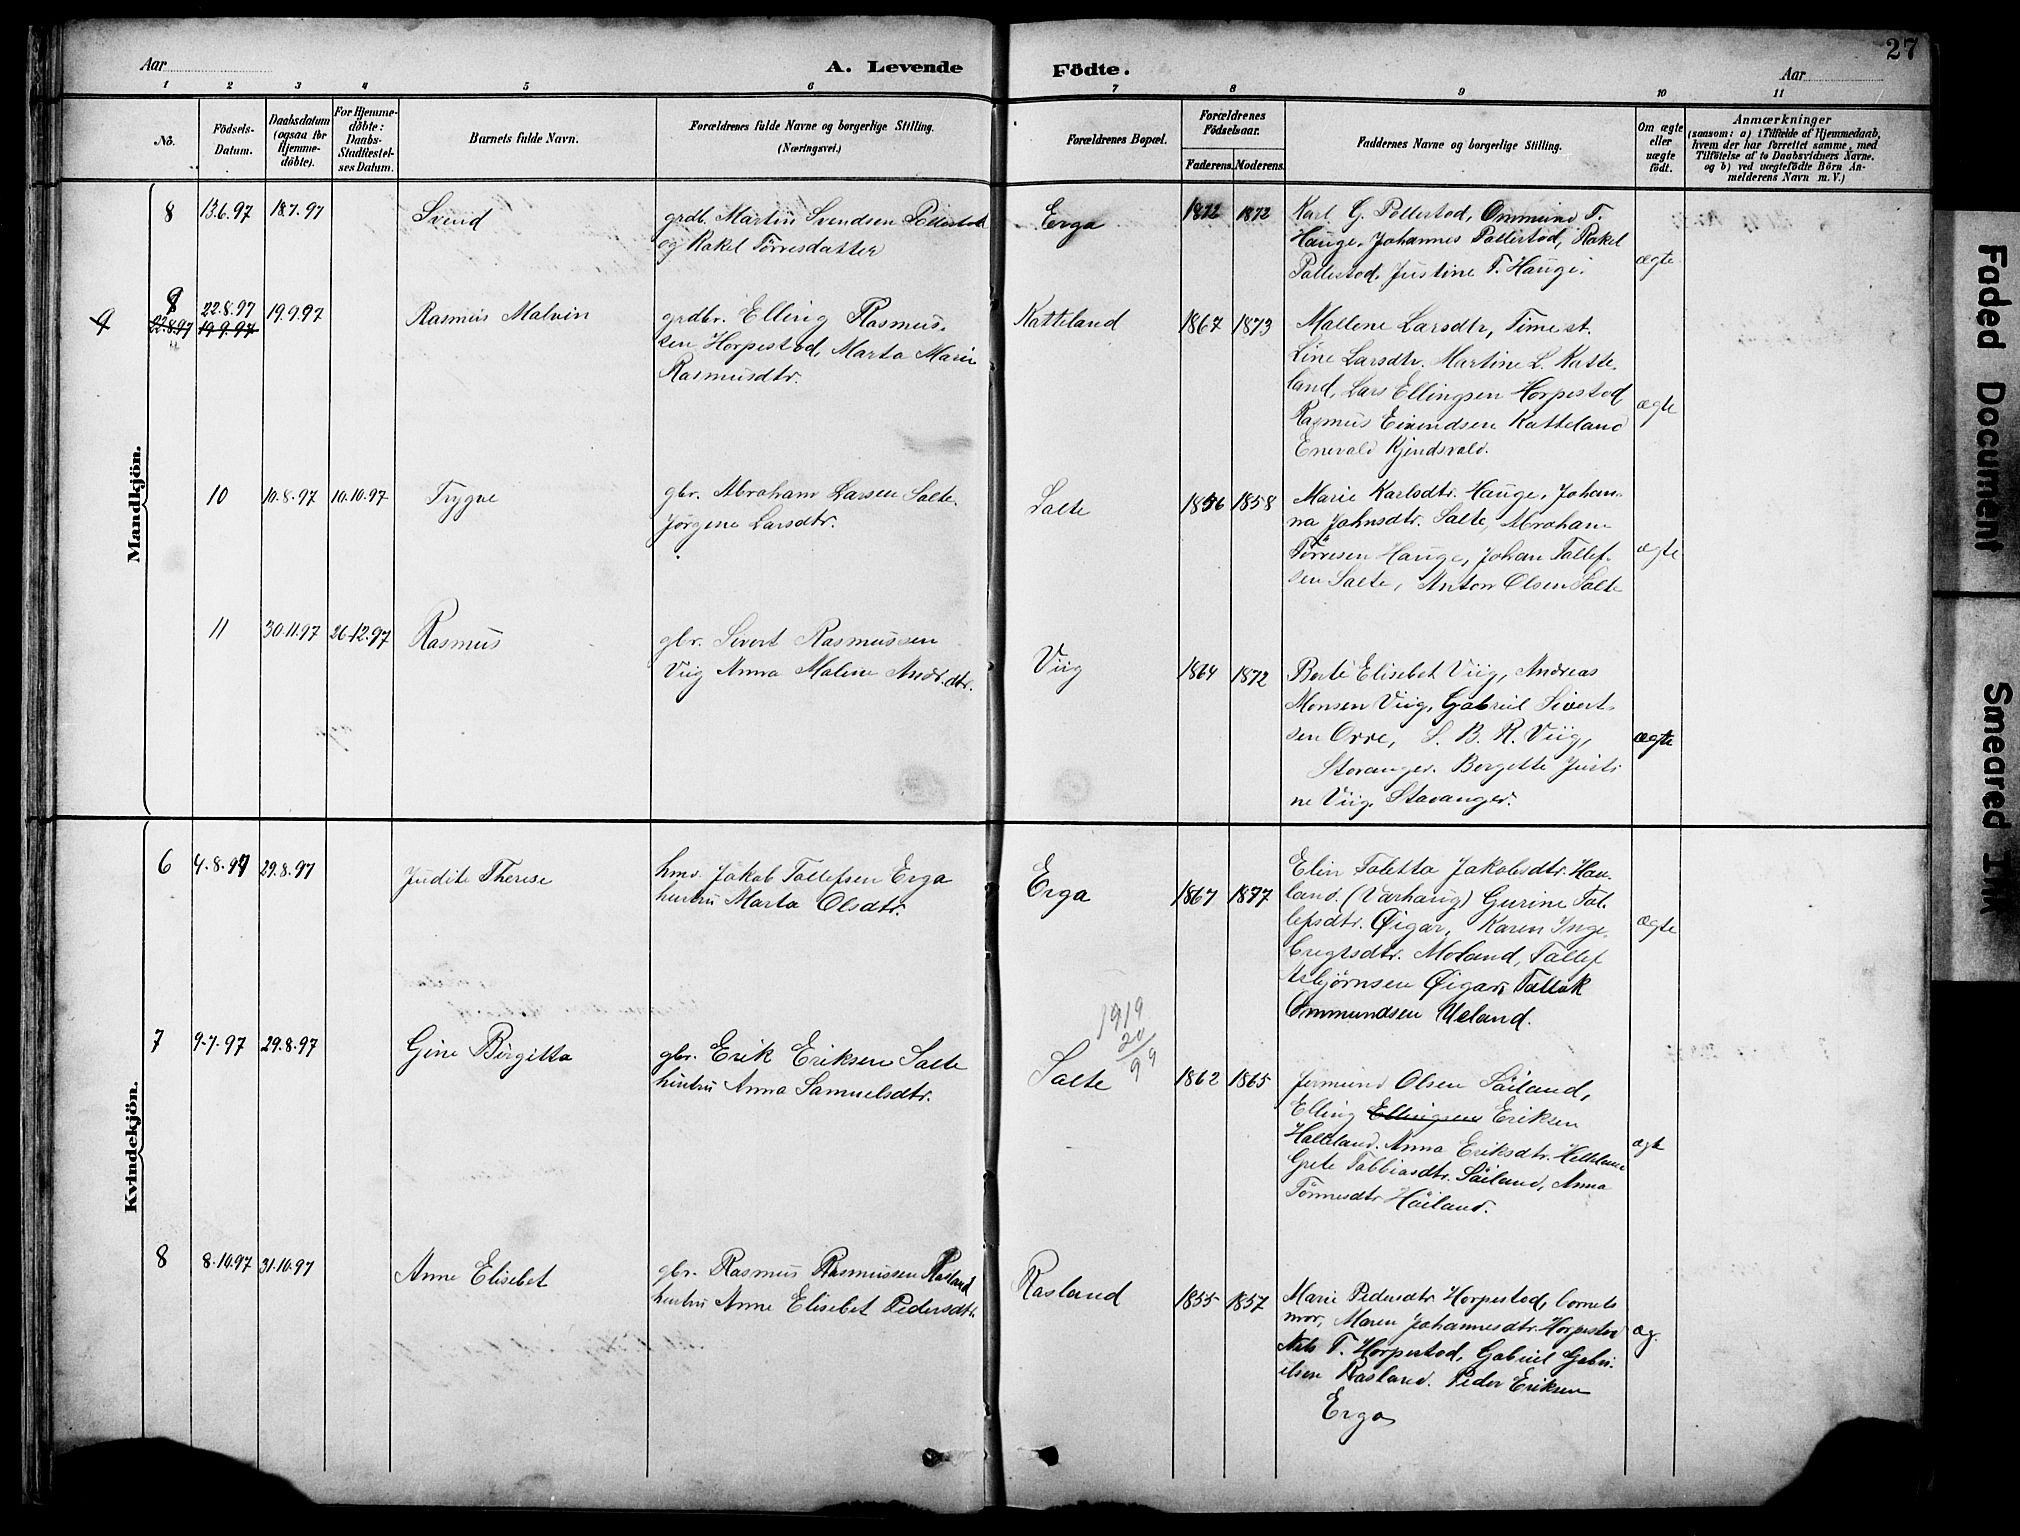 27
Aar
A. Levende
Födte.
Aar
1 2 3 4 5 6 7 8 9 10 11
No.
Födsels-
Datum.
Daabsdatum
(ogsaa for
Hjemme-
döbte).
For Hjemme-
döbte:
Daabs-
Stadfæstel-
ses Datum.
Barnets fulde Navn.
Forældrenes fulde Navne og borgerlige Stilling.
(Næringsvei.)
Forældrenes Bopæl.
Forældrenes
Födselsaar.
Faderens. Moderens.
Faddernes Navne og borgerlige Stilling.
Om ægte
eller
uægte
födt.
Anmærkninger
(saasom: a) i Tilfælde af Hjemmedaab,
hvem der har forrettet samme, med
Tilföielse af to Daabsvidners Navne,
og b) ved uægtefödte Börn An-
melderens Navn m. V.)
Mandkjön.
8 13.6.97 18.7.97
Svend
grdb. Martin Svendsen Pollestad
og Rakel Tørresdatter
Erga
1872 1872
Karl G. Pollestad, Ommund T.
Hauge, Johannes Pollestad, Rakel
Pollestad, Justine T. Hauge.
ægte
9
9 22.8.97 19.9.97
22.8.97 19.9.97
Rasmus Malvin
grdbr. Elling Rasmus-
sen Horpestad, Marta Marie
Rasmusdtr.
Katteland
1867 1873
Mallene Larsdtr, Time st.
Line Larsdtr. Martine L. Katte-
land, Lars Ellingsen Horpestad
Rasmus Eivindsen Katteland
Enevald Kjendsvald.
ægte
10 10.8.97 10.10.97
Trygve
gbr. Abraham Larsen Salte.
Jørgine Larsdtr.
Salte
1856 1858
Marie Karlsdtr. Hauge, Johan-
na Johnsdtr. Salte, Abraham
Tørresen Hauge, Johan Tollef-
sen Salte, Anton Olsen Salte
ægte
11 30.11.97 26.12.97
Rasmus
gbr. Sivert Rasmussen
Viig Anna Maline Andr.dtr.
Viig
1864 1872
Berte Elisebet Viig, Andreas
Monsen Viig, Gabriel Sivert-
sen Orre, S. B. R. Viig,
Stavanger. Bergitte Justi-
ne Viig, Stavanger.
ægte
Kvindekjön.
6 4.8.97 29.8.97
Judite Therese
hmd. Jakob Tollefsen Erga
hustru Marta Olsdtr.
Erga
1867 1877
Elin Taletta Jakobsdtr. Hau-
land. (Varhaug) Gurine Tol-
lefsdtr. Øigar, Karen Inge-
bregtsdtr. Moland, Tollef
Asbjørnsen Øigar, Tollak
Ommundsen Ueland.
ægte
7 9.7.97 29.8.97
Gine Birgitta
gbr. Erik Eriksen Salte
hustru Anna Samuelsdtr.
1919
20/9 9
Salte
1862 1865
Jermund Olsen Såiland,
Elling Ellingsen Eriksen
Halleland. Anna Eriksdtr. Helleland
Grete Tobbiasdtr. Såiland, Anna
Tønnesdtr Håiland.
ægte
8 8.10.97 31.10.97
Anne Elisebet
gbr. Rasmus Rasmussen Rasland
hustru Anne Elisebet Pedersdtr.
Rasland
1855 1857
Marie Pedersdtr Horpestad, barnets
mor, Maren Johannesdtr. Horpestad
Nils T. Horpestad, Gabriel Gabri-
elsen Rasland. Peder Eriksen
Erga
æg.
Faded Document
Smeared Ink